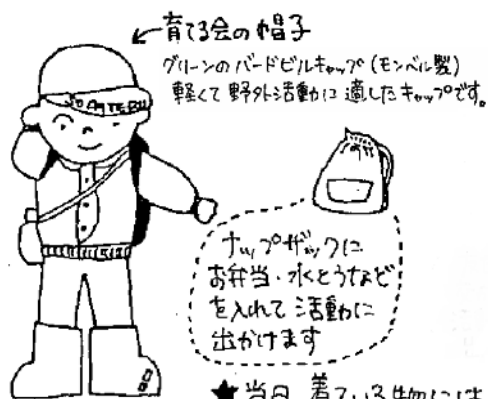 育てる会の帽子
グリーンのバードビルキャップ(モンベル製)
軽くて野外活動に適したキャップです。
ナップザックに
お弁当・水とうなど
を入れて活動に
出かけます
★当日 着ている物には